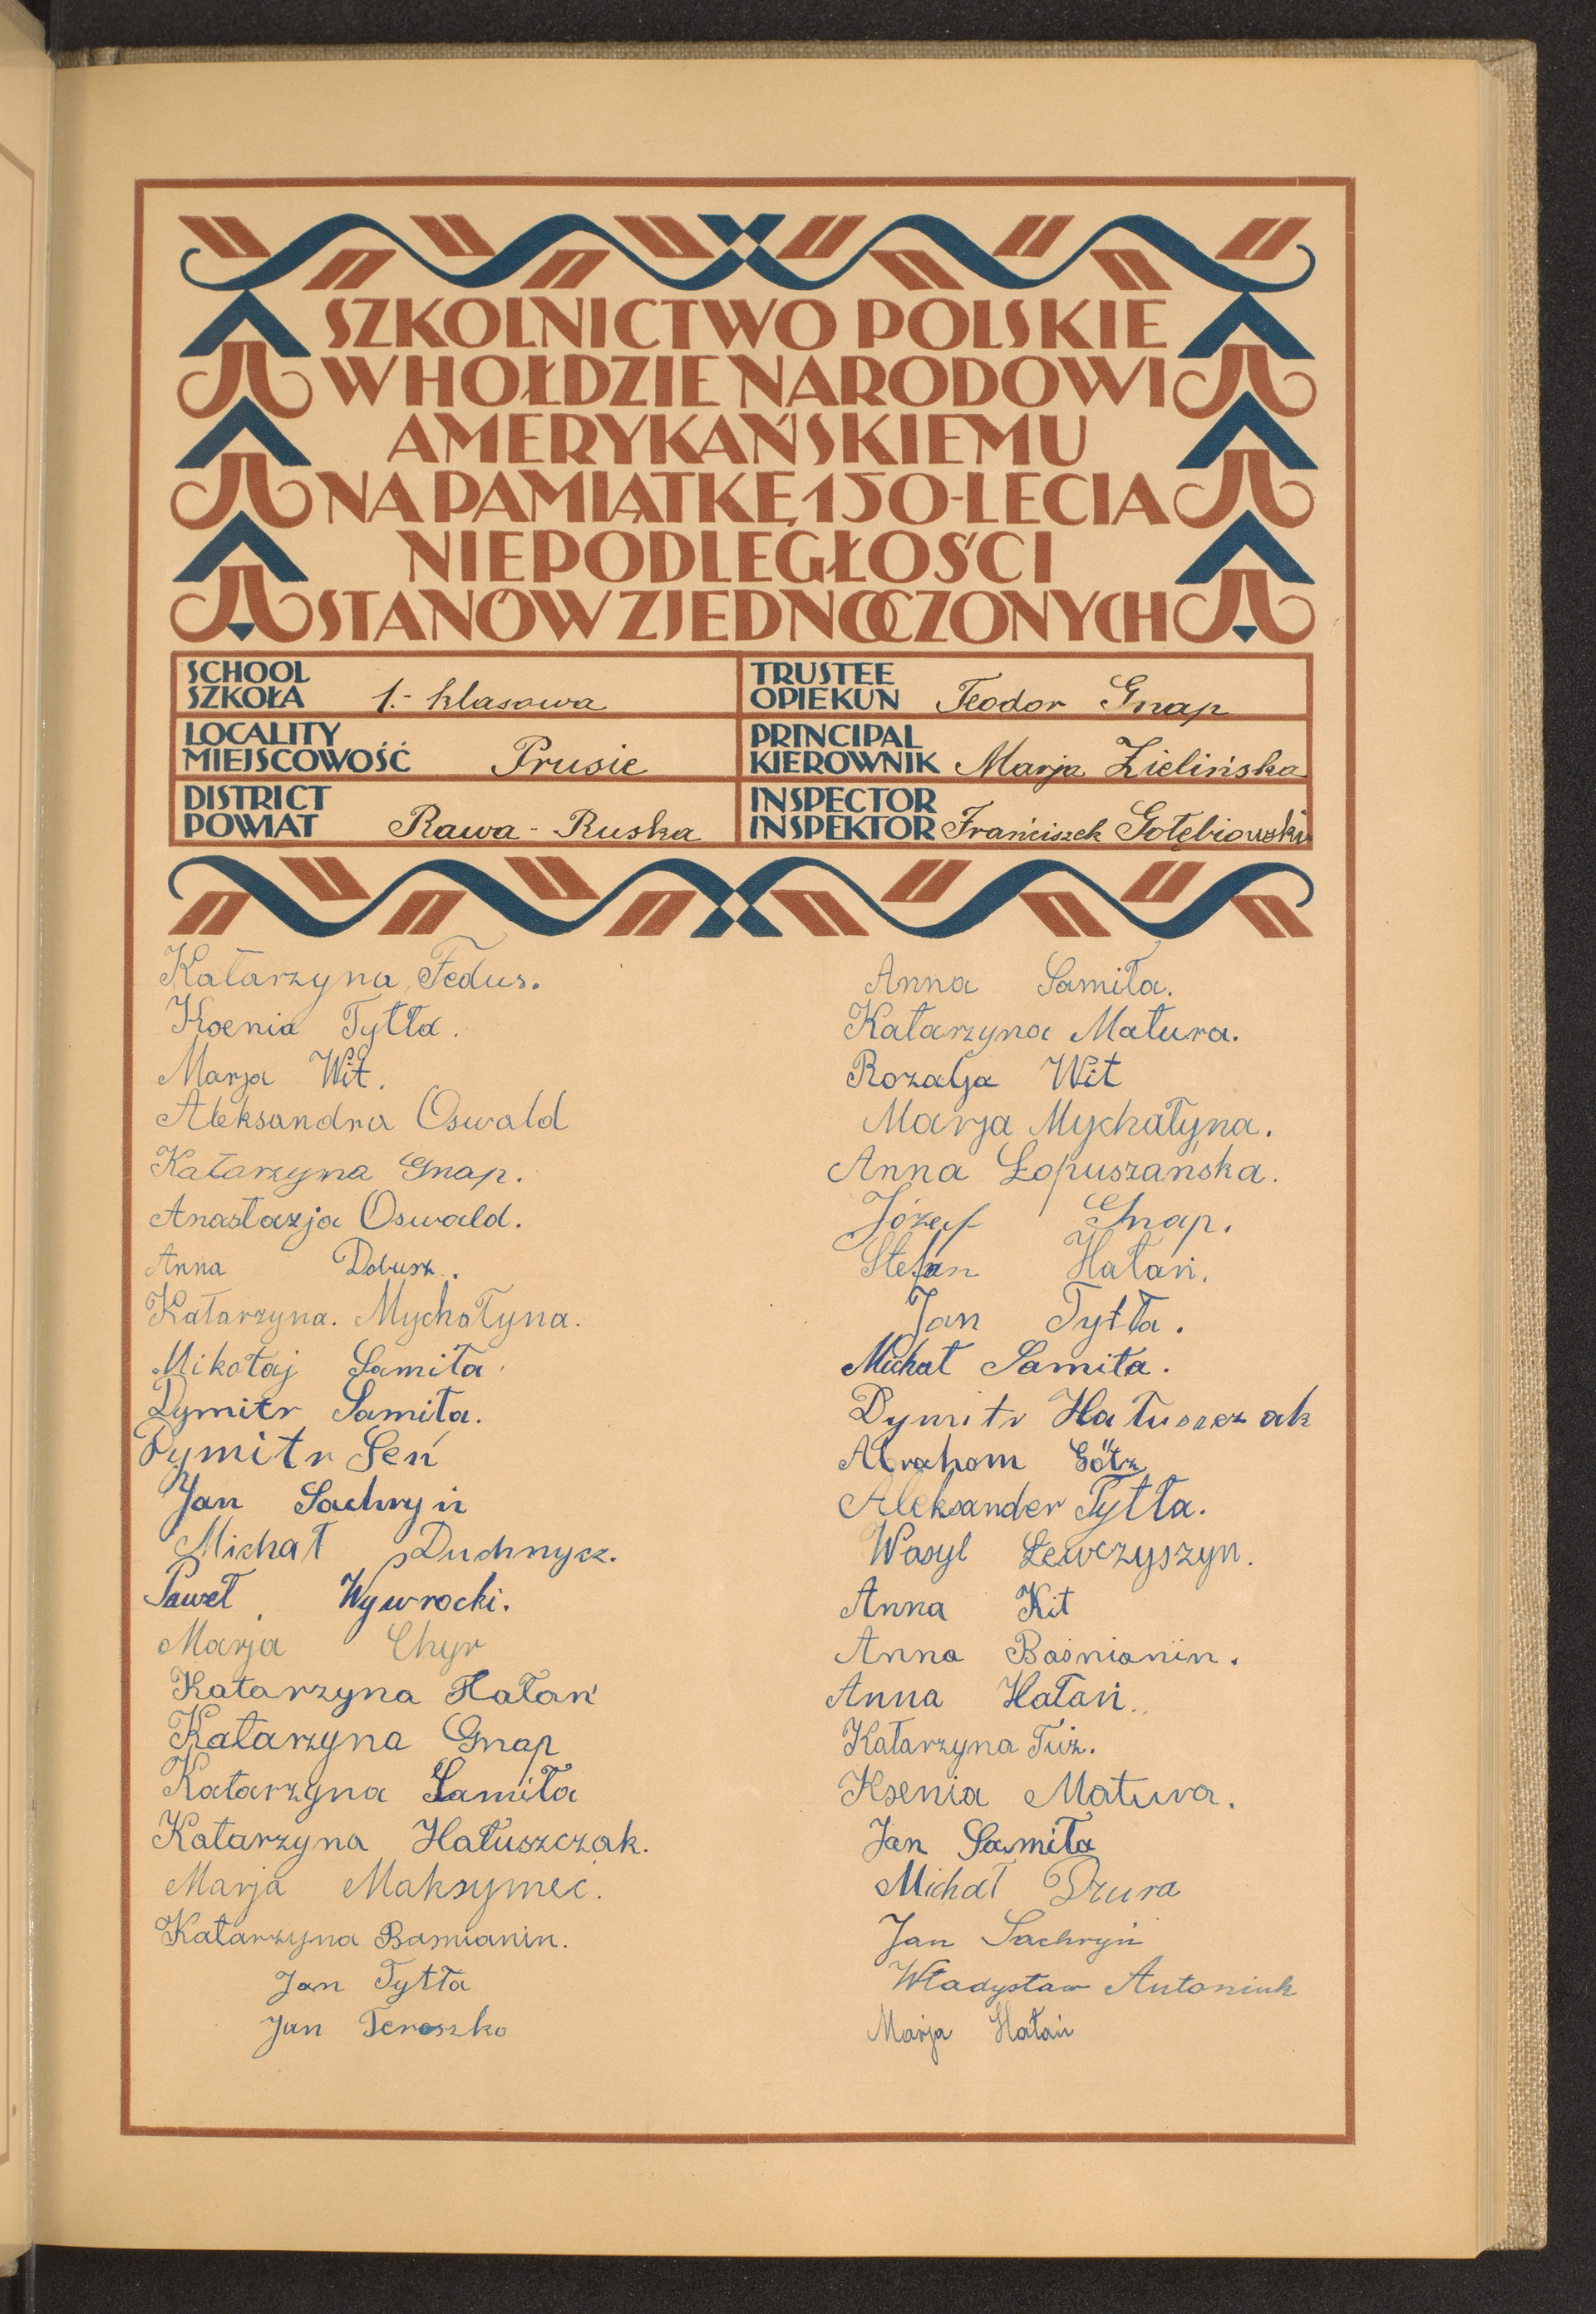 SZKOLNICTWO POLSKIE
W HOŁDZIE NARODOWI
AMERYKAŃSKIEMU
NA PAMIĄTKĘ 150-LECIA
NIEPODLEGŁOŚCI
STANÓW ZJEDNOCZONYCH
SCHOOL
SZKOŁA 1.- klasowa
LOCALITY
MIEJSCOWOŚĆ Prusie
DISTRICT
POWIAT Rawa - Ruska
TRUSTEE
OPIEKUN Teodor Gnap
PRINCIPAL
KIEROWNIK Marja Zielińska
INSPECTOR
INSPEKTOR Franciszek Gołębiowski
Katarzyna Fedus.
Ksenia Tytła.
Marja Wit.
Aleksandra Oswald
Katarzyna Gnap.
Anastazja Oswald.
Anna Dobusz.
Katarzyna. Mychałyna.
Mikołaj Samiła
Dymitr Samiła.
Dymitr Seń
Jan Sachryń
Michał Duchnycz.
Paweł Wywrocki.
Marja Chyr
Katarzyna Hałań
Katarzyna Gnap
Katarzyna Samiła
Katarzyna Hałuszczak.
Marja Maksymeć.
Katarzyna Basmianin.
Jan Tytła
Jan Teroszko
Anna Samiła.
Katarzyna Matura.
Rozalja Wit
Marja Mychałyna.
Anna Łopuszańska.
Józef Gnap.
Stefan Hałań.
Jan Tytła.
Michał Samiła.
Dymitr Hałuszczak
Abraham Götz
Aleksander Tytła.
Wasyl Lewczyszyn.
Anna Kit
Anna Baśnianin.
Anna Hałań.
Katarzyna Tuz.
Ksenia Matura.
Jan Samiła
Michał Dzura
Jan Sachryń
Władysław Antoniuk
Marja Hałań